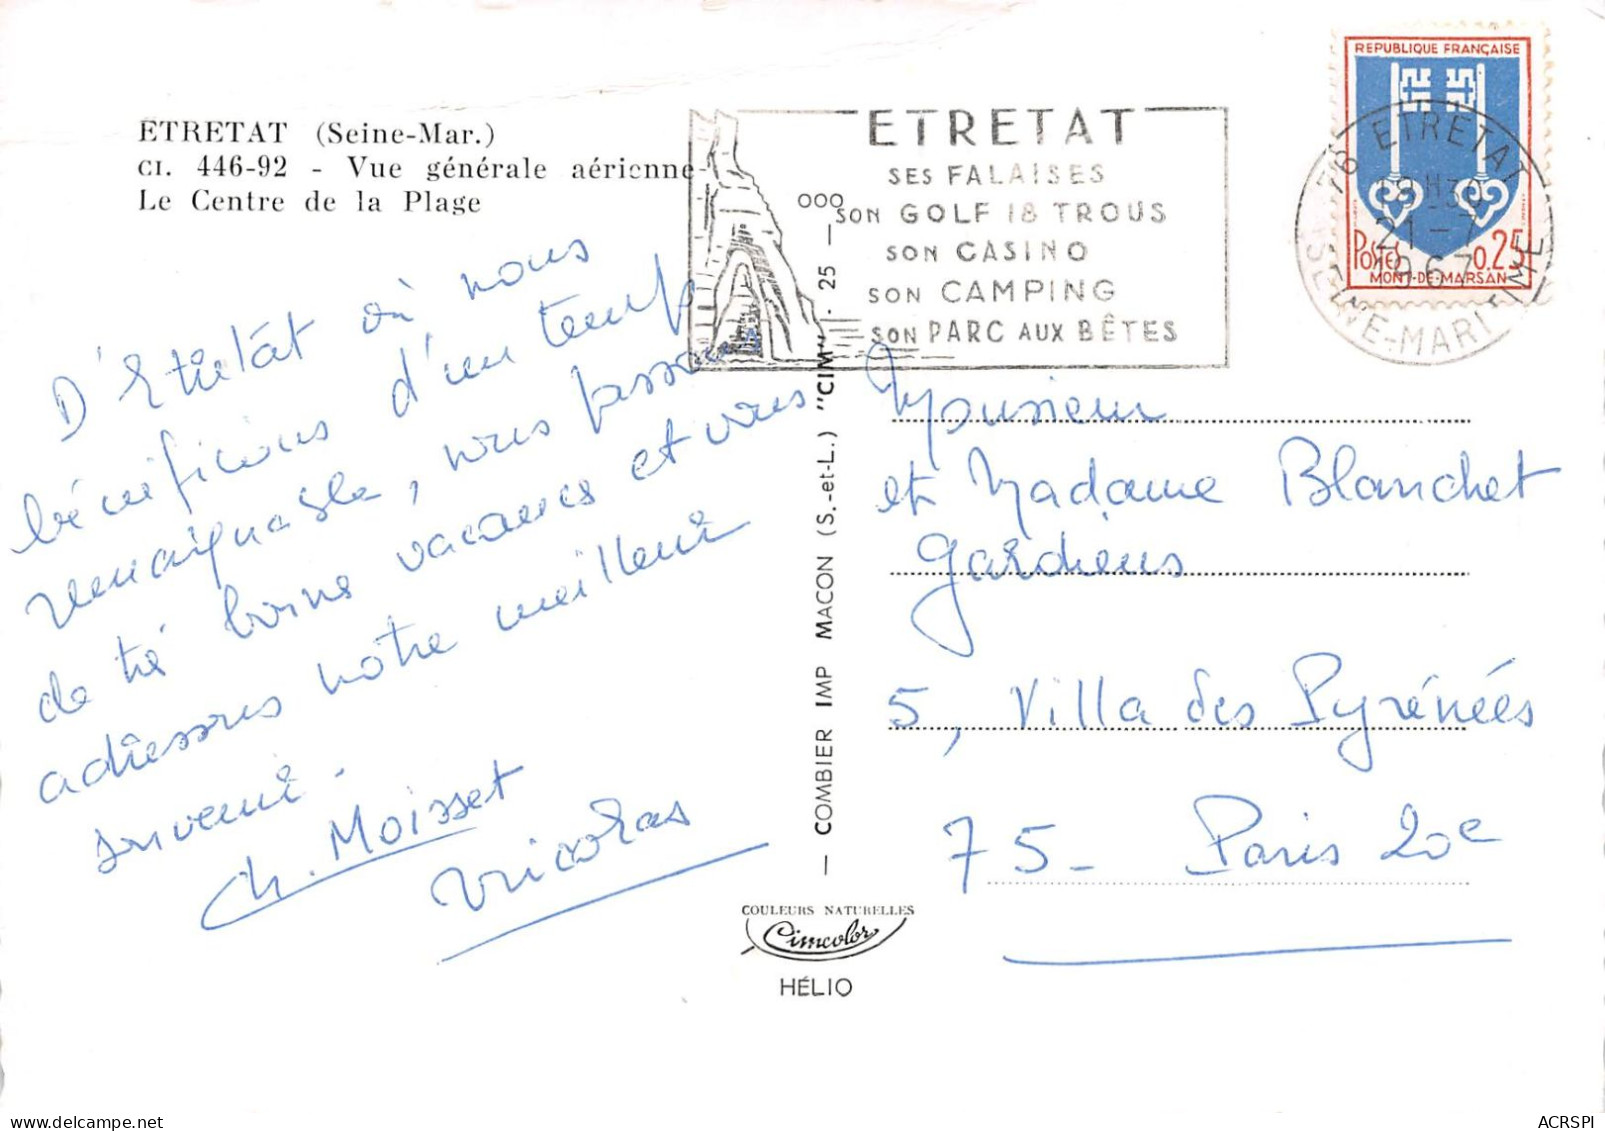 ETRETAT (Seine-Mar.)
CI. 446-92 - Vue générale aérienne
Le Centre de la Plage
D'Etretat où nous
bénéficions d'un temps
remarquable, nous passons
de trè bonne vacances et vous
adressons notre meilleur
souvenir.
Ch. Moisset
Nicolas
ETRETAT
SES FALAISES
SON GOLF 18 TROUS
SON CASINO
SON CAMPING
SON PARC AUX BÊTES
REPUBLIQUE FRANÇAISE
POSTES 0,25
MONT-DE-MARSAN
76 ETRETAT
18H30
21-7
1967
SEINE-MARITIME
COMBIER IMP MACON (S.-et-L.) "CIM" . 25
Monsieur
et Madame Blanchet
Gardiens
5, Villa des Pyrénées
75 - Paris 20e
COULEURS NATURELLES
Cimcolor
HÉLIO
ACRSPI